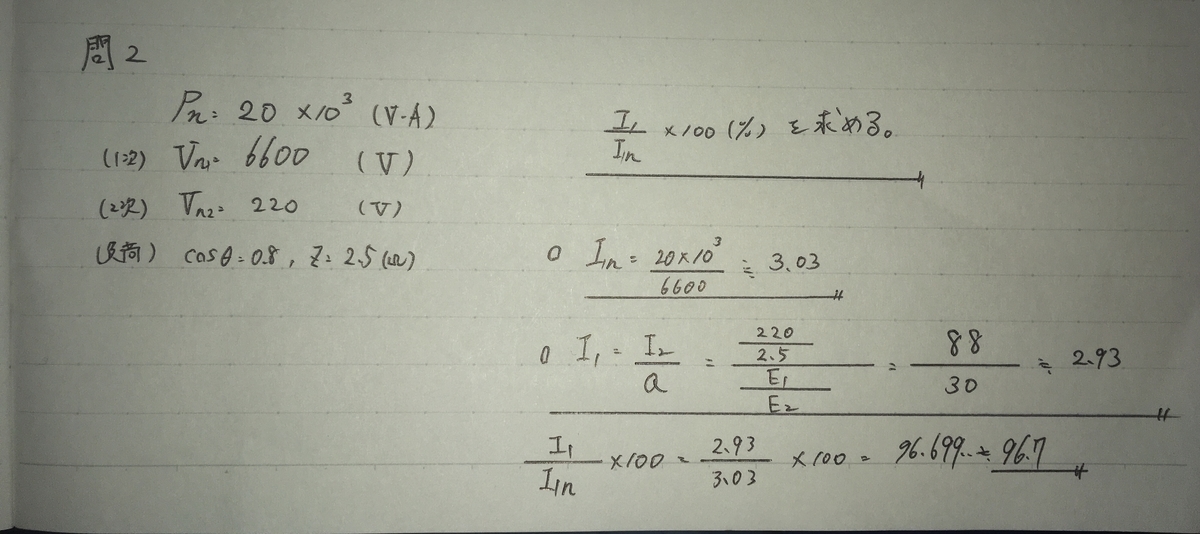 問2
Pn= 20 ×10³ (V·A)
(1次) Vn1= 6600 (V)
(2次) Vn2= 220 (V)
(負荷) cosθ=0.8, Z=2.5(Ω)
I₁/I₁n ×100 (%) を求める。
○ I₁n = 20×10³/6600 ≒ 3.03
○ I₁ = I₂/a = (220/2.5)/(E₁/E₂) = 88/30 ≒ 2.93
I₁/I₁n ×100 = 2.93/3.03 ×100 = 96.699.. ≒ 96.7